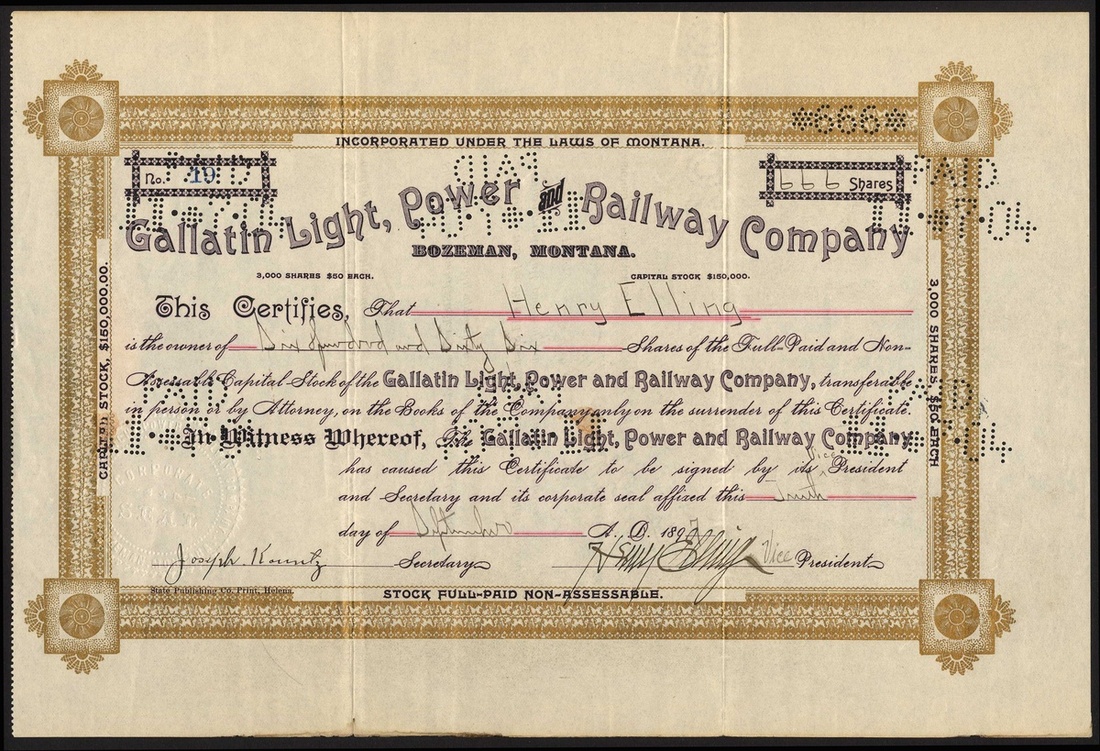 *666*
INCORPORATED UNDER THE LAWS OF MONTANA.
No. 19
666 Shares
PAID
Gallatin Light, Power and Railway Company
BOZEMAN, MONTANA.
3,000 SHARES $50 EACH.
CAPITAL STOCK $150,000.
This Certifies, That Henry Elling
is the owner of Six Hundred and Sixty Six Shares of the Full-Paid and Non-
Assessable Capital Stock of the Gallatin Light, Power and Railway Company, transferable
in person or by Attorney, on the Books of the Company only on the surrender of this Certificate.
In Witness Whereof, The Gallatin Light, Power and Railway Company
has caused this Certificate to be signed by its Vice President
and Secretary and its corporate seal affixed this Tenth
day of September A. D. 1897
Joseph Kountz Secretary Henry Elling Vice President
State Publishing Co. Print, Helena.
STOCK FULL-PAID NON-ASSESSABLE.
CAPITAL STOCK, $150,000.00.
3,000 SHARES $50 EACH